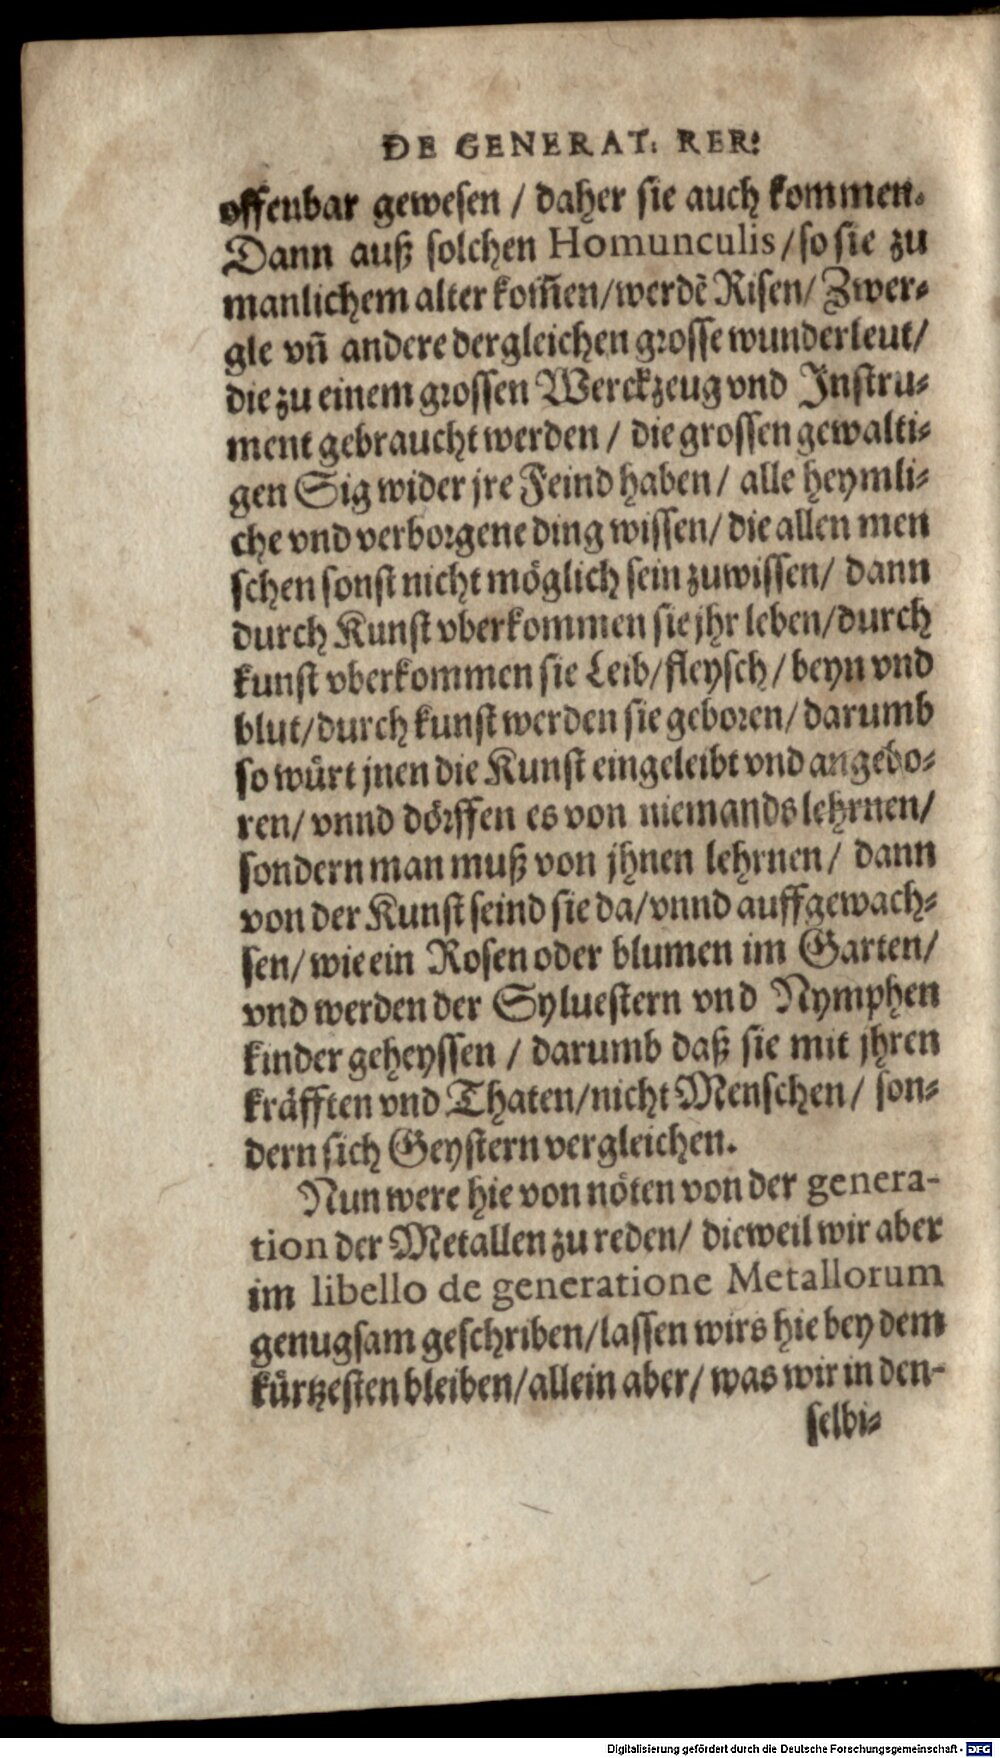 DE GENERAT. RER.
offenbar gewesen / daher sie auch kommen.
Dann auß solchen Homunculis / so sie zu
manlichem alter kom̃en / werdẽ Risen / Zwer-
gle vñ andere dergleichen grosse wunderleut /
die zu einem grossen Werckzeug vnd Instru-
ment gebraucht werden / die grossen gewalti-
gen Sig wider jre Feind haben / alle heymli-
che vnd verborgene ding wissen / die allen men
schen sonst nicht möglich sein zuwissen / dann
durch Kunst vberkommen sie jhr leben / durch
kunst vberkommen sie Leib / fleysch / beyn vnd
blut / durch kunst werden sie geboren / darumb
so würt jnen die Kunst eingeleibt vnd angebo-
ren / vnnd dörffen es von niemands lehrnen /
sondern man muß von jhnen lehrnen / dann
von der Kunst seind sie da / vnnd auffgewach-
sen / wie ein Rosen oder blumen im Garten /
vnd werden der Syluestern vnd Nymphen
kinder geheyssen / darumb daß sie mit jhren
kräfften vnd Thaten / nicht Menschen / son-
dern sich Geystern vergleichen.
Nun were hie von nöten von der genera-
tion der Metallen zu reden / dieweil wir aber
im libello de generatione Metallorum
genugsam geschriben / lassen wirs hie bey dem
kürtzesten bleiben / allein aber / was wir in den-
selbi-
Digitalisierung gefördert durch die Deutsche Forschungsgemeinschaft - DFG